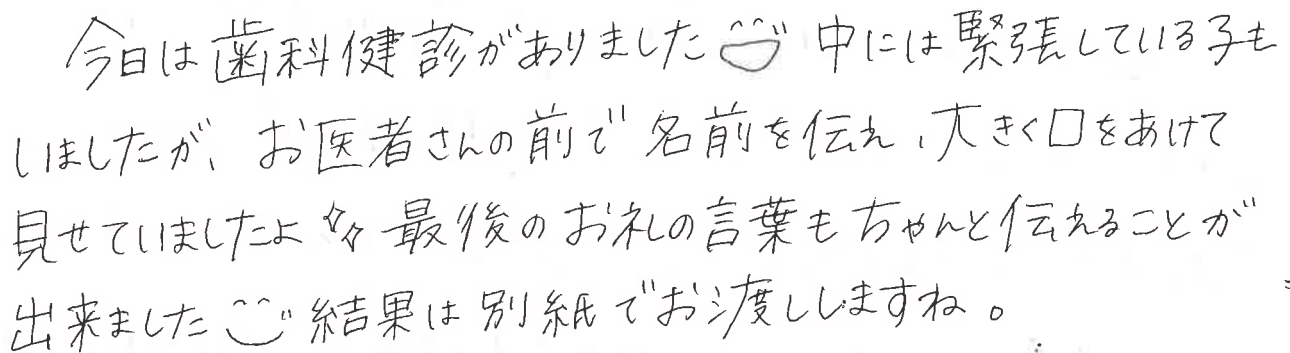 今日は歯科健診がありました 中には緊張している子も
いましたが、お医者さんの前で名前を伝え、大きく口をあけて
見せていましたよ 最後のお礼の言葉もちゃんと伝えることが
出来ました 結果は別紙でお渡ししますね。